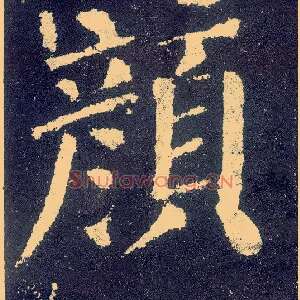 顏
Shufawang.CN